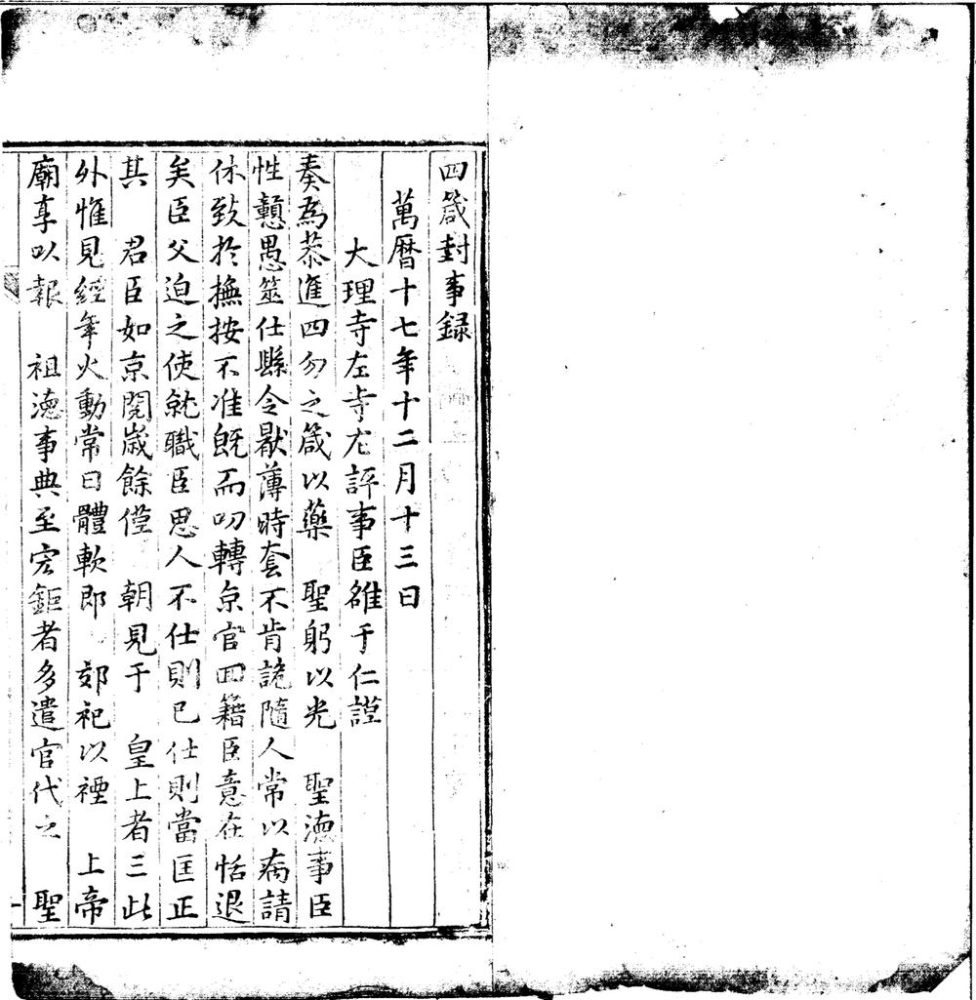 四箴封事録
萬曆十七年十二月十三日
大理寺左寺左評事臣雒于仁謹
奏爲恭進四勿之箴以藥 聖躬以光 聖德事臣
性戇愚筮仕縣令厭薄時套不肯詭隨人常以病請
休致於撫按不准旣而叨轉京官回籍臣意在恬退
矣臣父迫之使就職臣思人不仕則已仕則當匡正
其 君臣如京閱歲餘僅 朝見于 皇上者三此
外惟見經年火動常曰體軟即 郊祀以禋 上帝
廟享以報 祖德事典至宏鉅者多遣官代之 聖